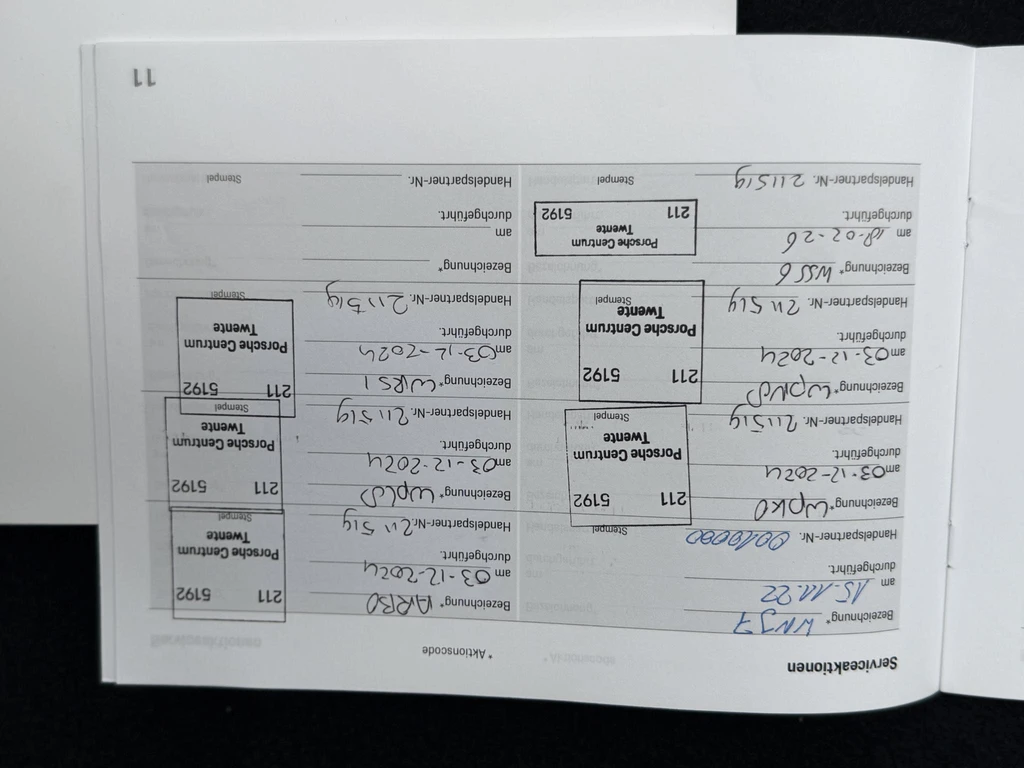 Serviceaktionen
* Aktionscode
Bezeichnung* WNJ7
am 15.11.22
durchgeführt.
Handelspartner-Nr. 0010000
Bezeichnung* WPK0
am 03-12-2024
durchgeführt.
Handelspartner-Nr. 211519
Stempel
211 5192
Porsche Centrum
Twente
Stempel
Bezeichnung*
am 03-12-2024
durchgeführt.
Handelspartner-Nr. 211519
211 5192
Porsche Centrum
Twente
Stempel
Bezeichnung* WSS6
am 18-02-26
durchgeführt.
Handelspartner-Nr. 211519
Porsche Centrum
Twente
211 5192
Stempel
Bezeichnung* ARB0
am 03-12-2024
durchgeführt.
Handelspartner-Nr. 211519
211 5192
Porsche Centrum
Twente
Stempel
Bezeichnung*
am 03-12-2024
durchgeführt.
Handelspartner-Nr. 211519
211 5192
Porsche Centrum
Twente
Stempel
Bezeichnung* WRS1
am 03-12-2024
durchgeführt.
Handelspartner-Nr. 211519
211 5192
Porsche Centrum
Twente
Stempel
Bezeichnung*
am
durchgeführt.
Handelspartner-Nr.
Stempel
11